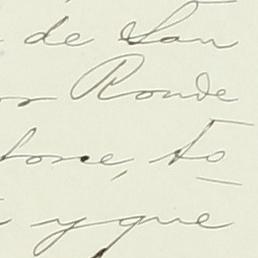 de San
or Ronde
tore, to
y que